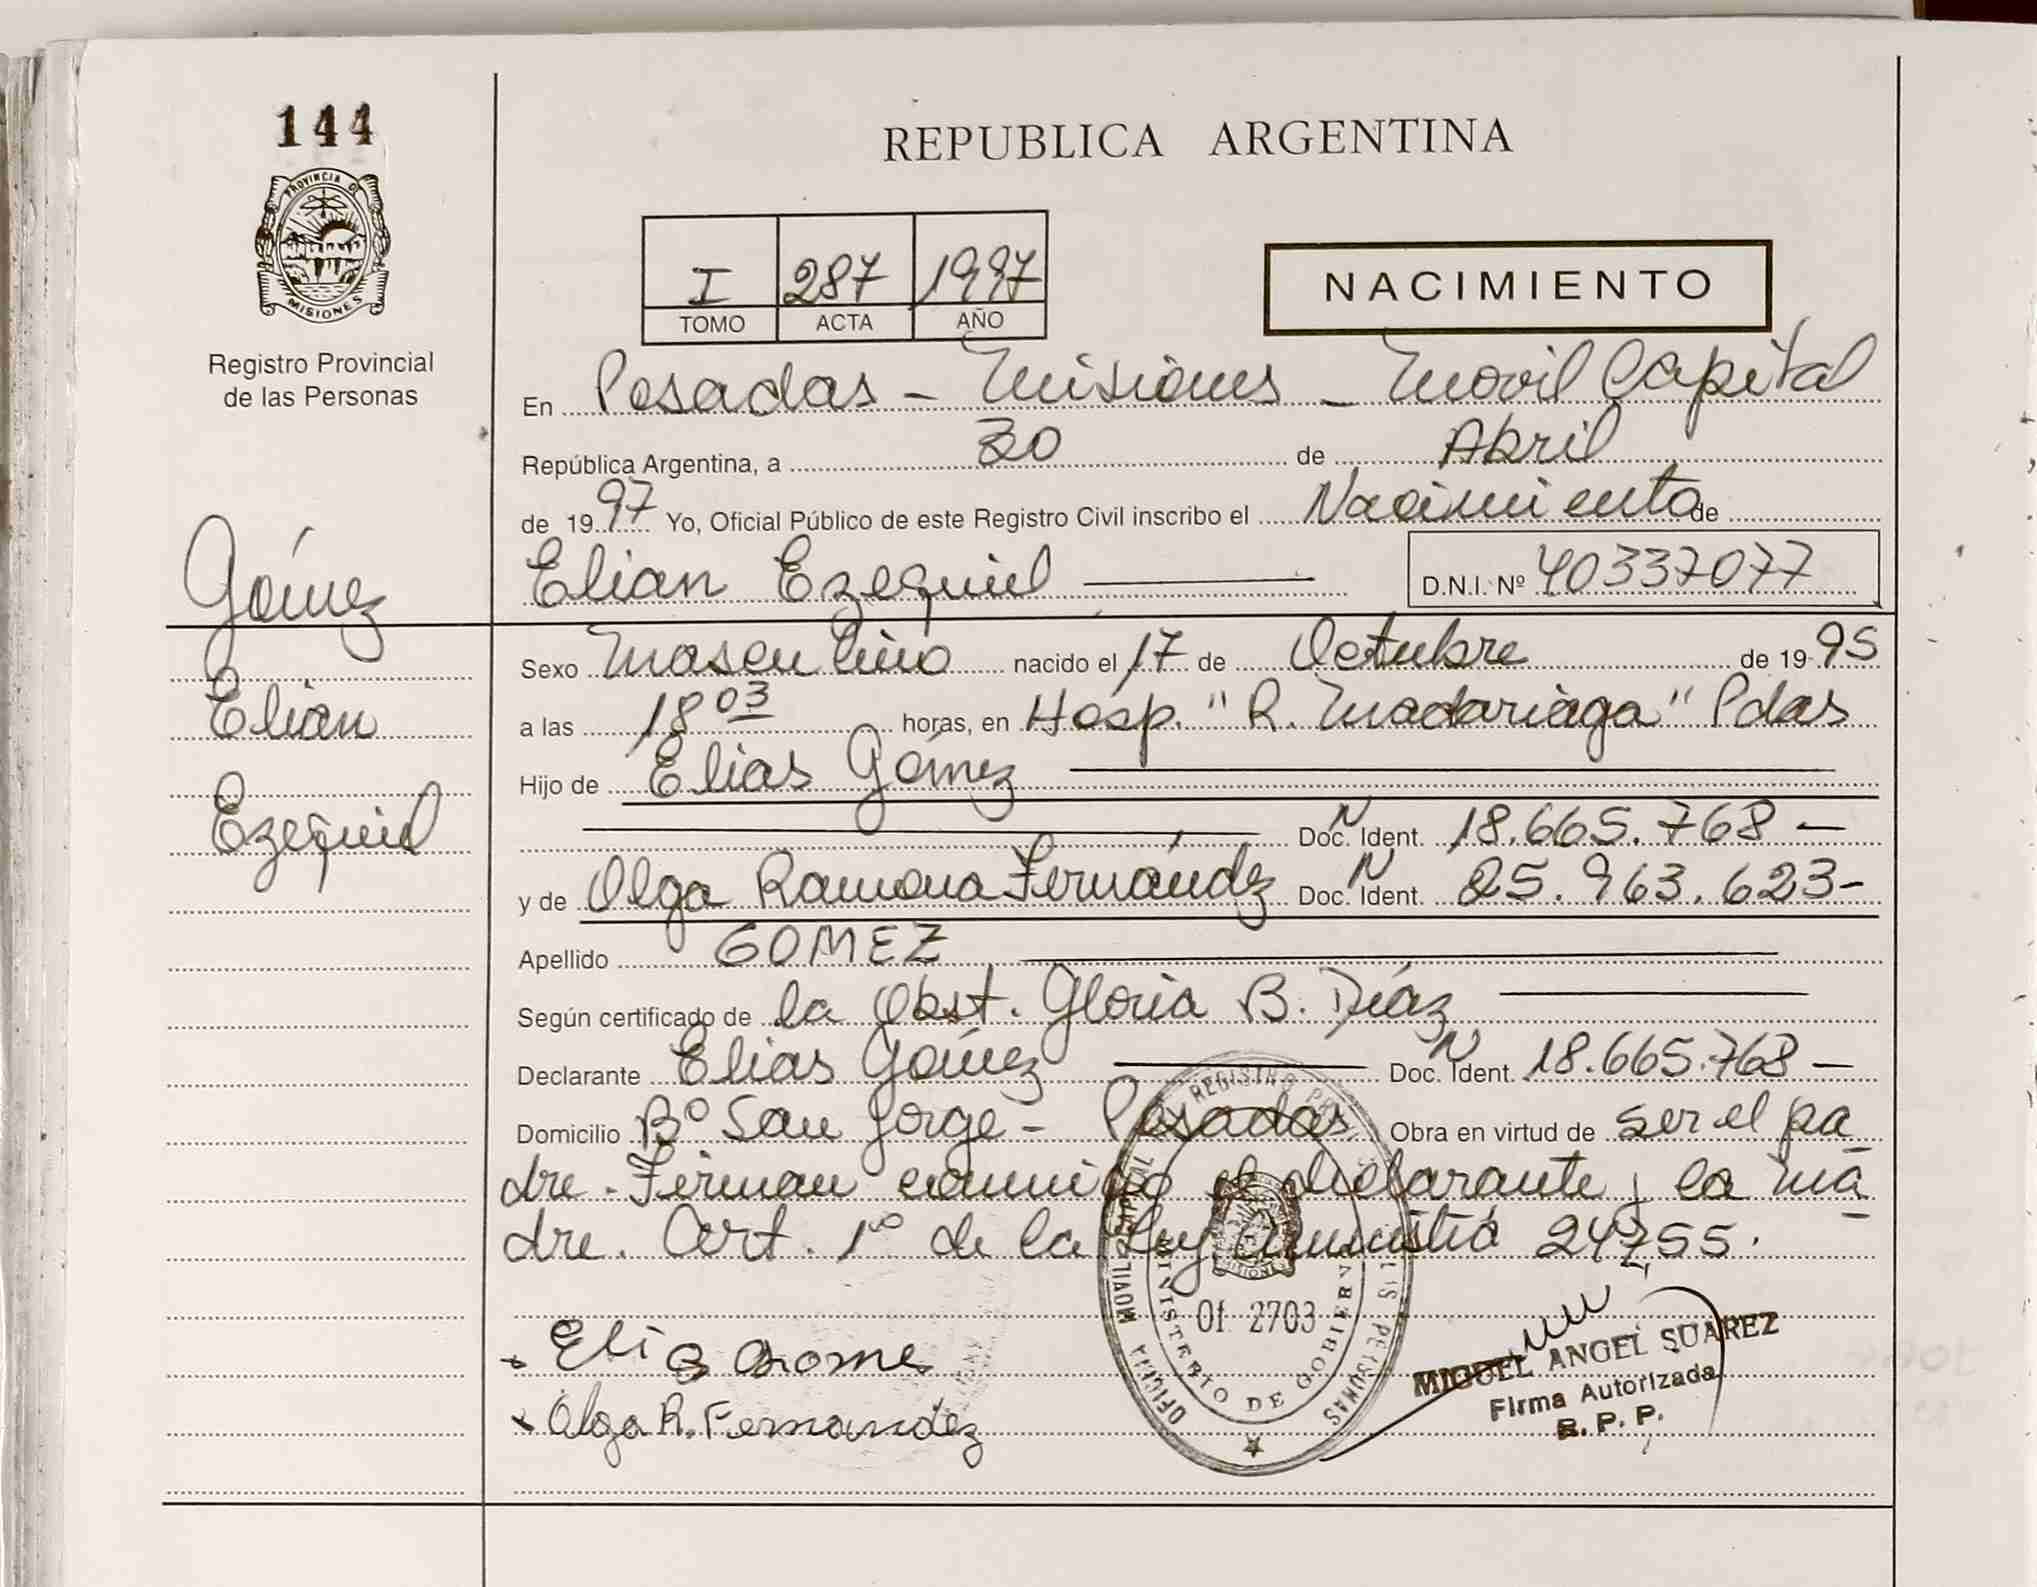 144
PROVINCIA DE
MISIONES
Registro Provincial
de las Personas
REPUBLICA ARGENTINA
I 287 1997
TOMO ACTA AÑO
NACIMIENTO
En Posadas - Misiones - Movil Capital
República Argentina, a 30 de Abril
de 1997 Yo, Oficial Público de este Registro Civil inscribo el Nacimiento de
Elian Ezequiel D.N.I. Nº 40337077
Gómez
Elián
Ezequiel
Sexo Masculino nacido el 17 de Octubre de 1995
a las 18 03 horas, en Hosp. "R. Madariaga" Pdas
Hijo de Elias Gómez
Doc. N Ident. 18.665.768 -
y de Olga Ramona Fernández Doc. N Ident. 25.963.623-
Apellido GOMEZ
Según certificado de la Obst. Gloria B. Díaz
Declarante Elias Gómez Doc. N Ident. 18.665.768 -
Domicilio Bº San Jorge - Posadas Obra en virtud de ser el pa
dre. Firman conmigo el declarante y la ma
dre. Art. 1º de la Ley Amnistia 24755.
Elias Gomes
Olga R. Fernandez
OFICINA MOVIL CAPITAL REGISTRO PROVINCIAL DE LAS PERSONAS
MINISTERIO DE GOBIERNO
MISIONES
Of 2703
MIGUEL ANGEL SUAREZ
Firma Autorizada
R. P. P.